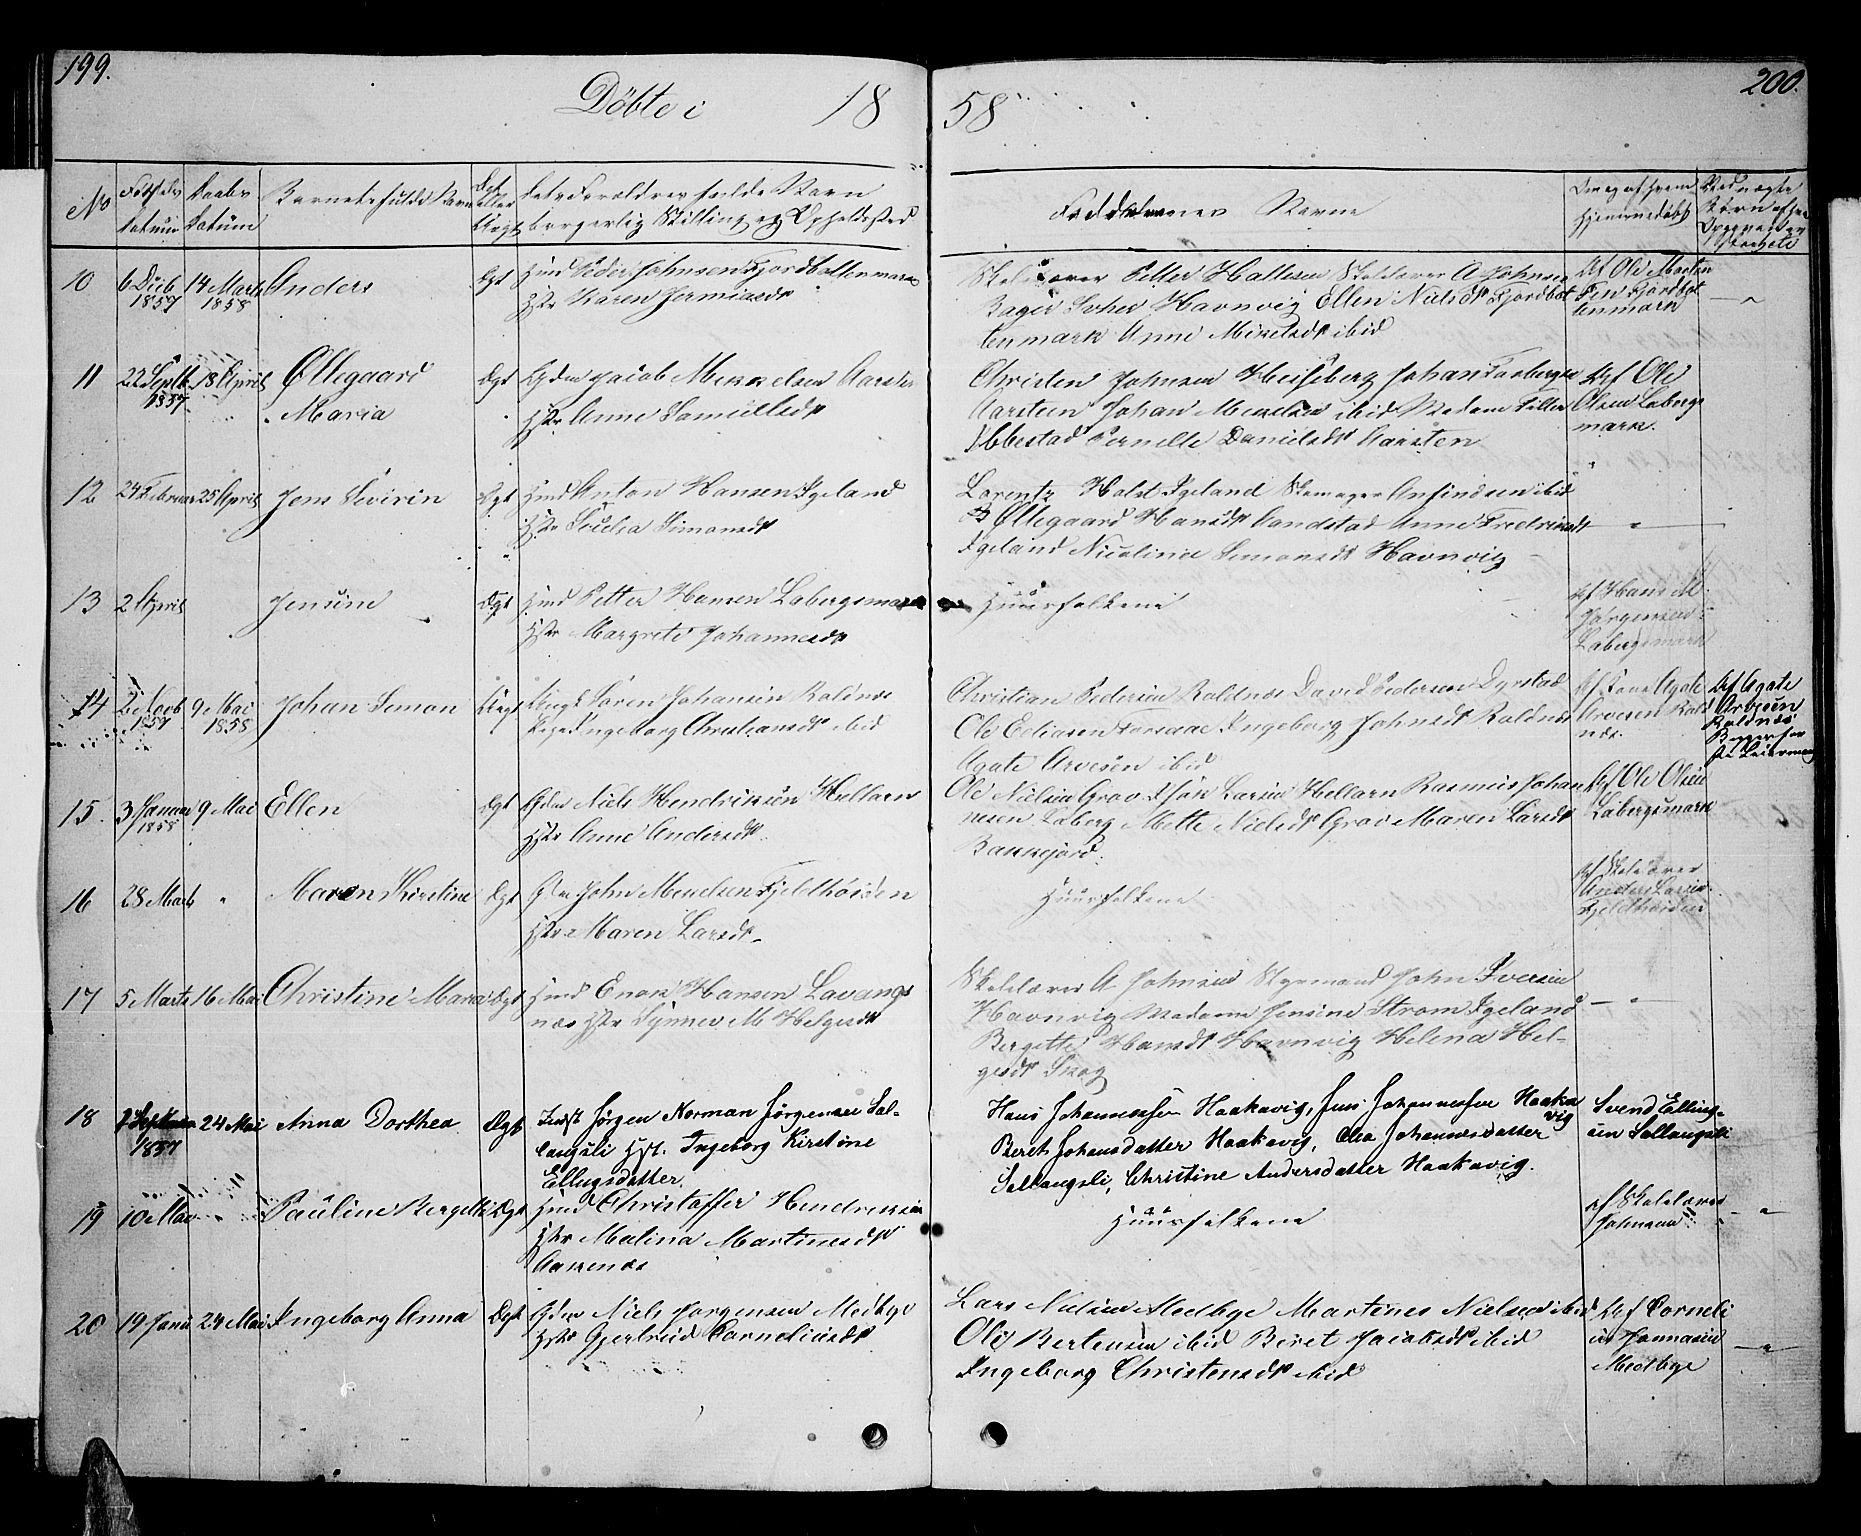 199.
200.
Döbte i 18 58
No
Fødsels Datum
Daabs Datum
Barnets fulde Navn
Ægt eller Uægt
Dets Forældres fulde Navn
borgerlig Stilling og Opholdssted
Faddernes Navne
Om og af hvem
hjemmedøbt
10 6 Decb 14 Marts Anders Ægt Hmd Peder Johnsen Fjordbottenmark
1857 1858 Hstr Karen Jermiasdt
Skolelærer Petter Hattesen Skolelærer A Johnsen
Havnvig Ellen Nielsdt Fjordbot
tenmark Anne Mikelsdt ibid
Af Ole Morten
Fjordbot
tenmark
11 22 Septb 18 April Øllegaard Ægt Gdm Jacob Mikkelsen Aarsten
1857 " Maria Hstr Anne Samuelsdt
Christen Johnsen Heifsberg Johan Forberger
Aarsteen Johan Mikelsen ibid Madam Petter
Ibbestad Pernille Danielsdt Aarsten
Af Ole
Olsen Labergs
mark.
12 24 Februar 25 April Jens Sevirin Ægt Hmd Anton Hansen Igeland
Hstr Simonsdt
Lorentz Holst Igeland ibid
Øllegaard Hansdt Sandstad Anne Fredriksdt
Igeland Nicolina Simonsdt Havnvig
13 2 April Jensine Ægt Hmd Petter Hansen Labergsmark
Hstr Margrete Johannesdt
Huusfolkene
Af Hans M
Jørgensen
Labergsmark
14 2 Novb 9 Mai Johan Simon Uægt Ungk Søren Johansen Roldnes
1857 1858 Pige Ingeborg Christiansdt ibid
Christian Pedersen Roldnes David Pedersen Dyrstad
Ole Eliasen Forsaae Ingeborg Johnsdt Roldnes
Agate Arvesen ibid
Agate
Arvesen Rold
nes.
Af Agate
Arvesen
Roldnes
15. 3 Januar 9 Mai Ellen Ægt Gdm Niels Hendriksen Hellarn
1858 Hstr Anne Andersdt
Ole Nielsen Grov Larsen Hellarn Rasmus Johan
nesen Laberg Mette Nielsdt Grov Maren Larsdt
Bankejord.
Af Ole Olsen
Labergsmark
16 28 Marts " Maren Kirstine Ægt Gm John Mikelsen Fjeldhøiden
Hstr Maren Larsdt
Huusfolkene
Af Skolelærer
Anders Larsen
Fjeldhøiden
17 5 Marts 16 Mai Christine Maria Ægt Hmd Enok Hansen Lavangs
næs Hstr Synnev M Helgesdt
Skolelærer A Johnsen Styrmand John Iversen
Havnvig Madame Jensine Strøm Igeland
Bergette Hansdt Havnvig Helena Hel-
gesdt Skog
18 7 September 24 Mai Anna Dorthea Ægt Indst Jørgen Norman Jørgensen Sal-
1857 langsli Hst. Ingeborg Kirstine
Ellingsdatter.
Hans Johannessen Haakavig, Jens Johannessen Haaka
vig
Beret Johansdatter Haakavig, Olea Johannesdatter
Sallangsli, Christine Andersdatter Haakavig.
Svend Elling-
sen Sallangsli
19 10 Mai Pauline Bergette Ægt Hmd Christoffer Hendriksen
Hstr Malina Martinusdt
Aakenes
Huusfolkene
Af Skolelærer
Johnsen
20 19 Janu 24 Mai Ingeborg Anna Ægt Gdm Niels Jørgensen Medbye
Hstr Gjertrud Corneliusdt
Lars Nielsen Medbye Martines Nielsen ibid
Ole Bertensen ibid Beret Jacobsdt ibid
Ingeborg Christensdt ibid
Af Corneli
us Jonnasen
Medbye